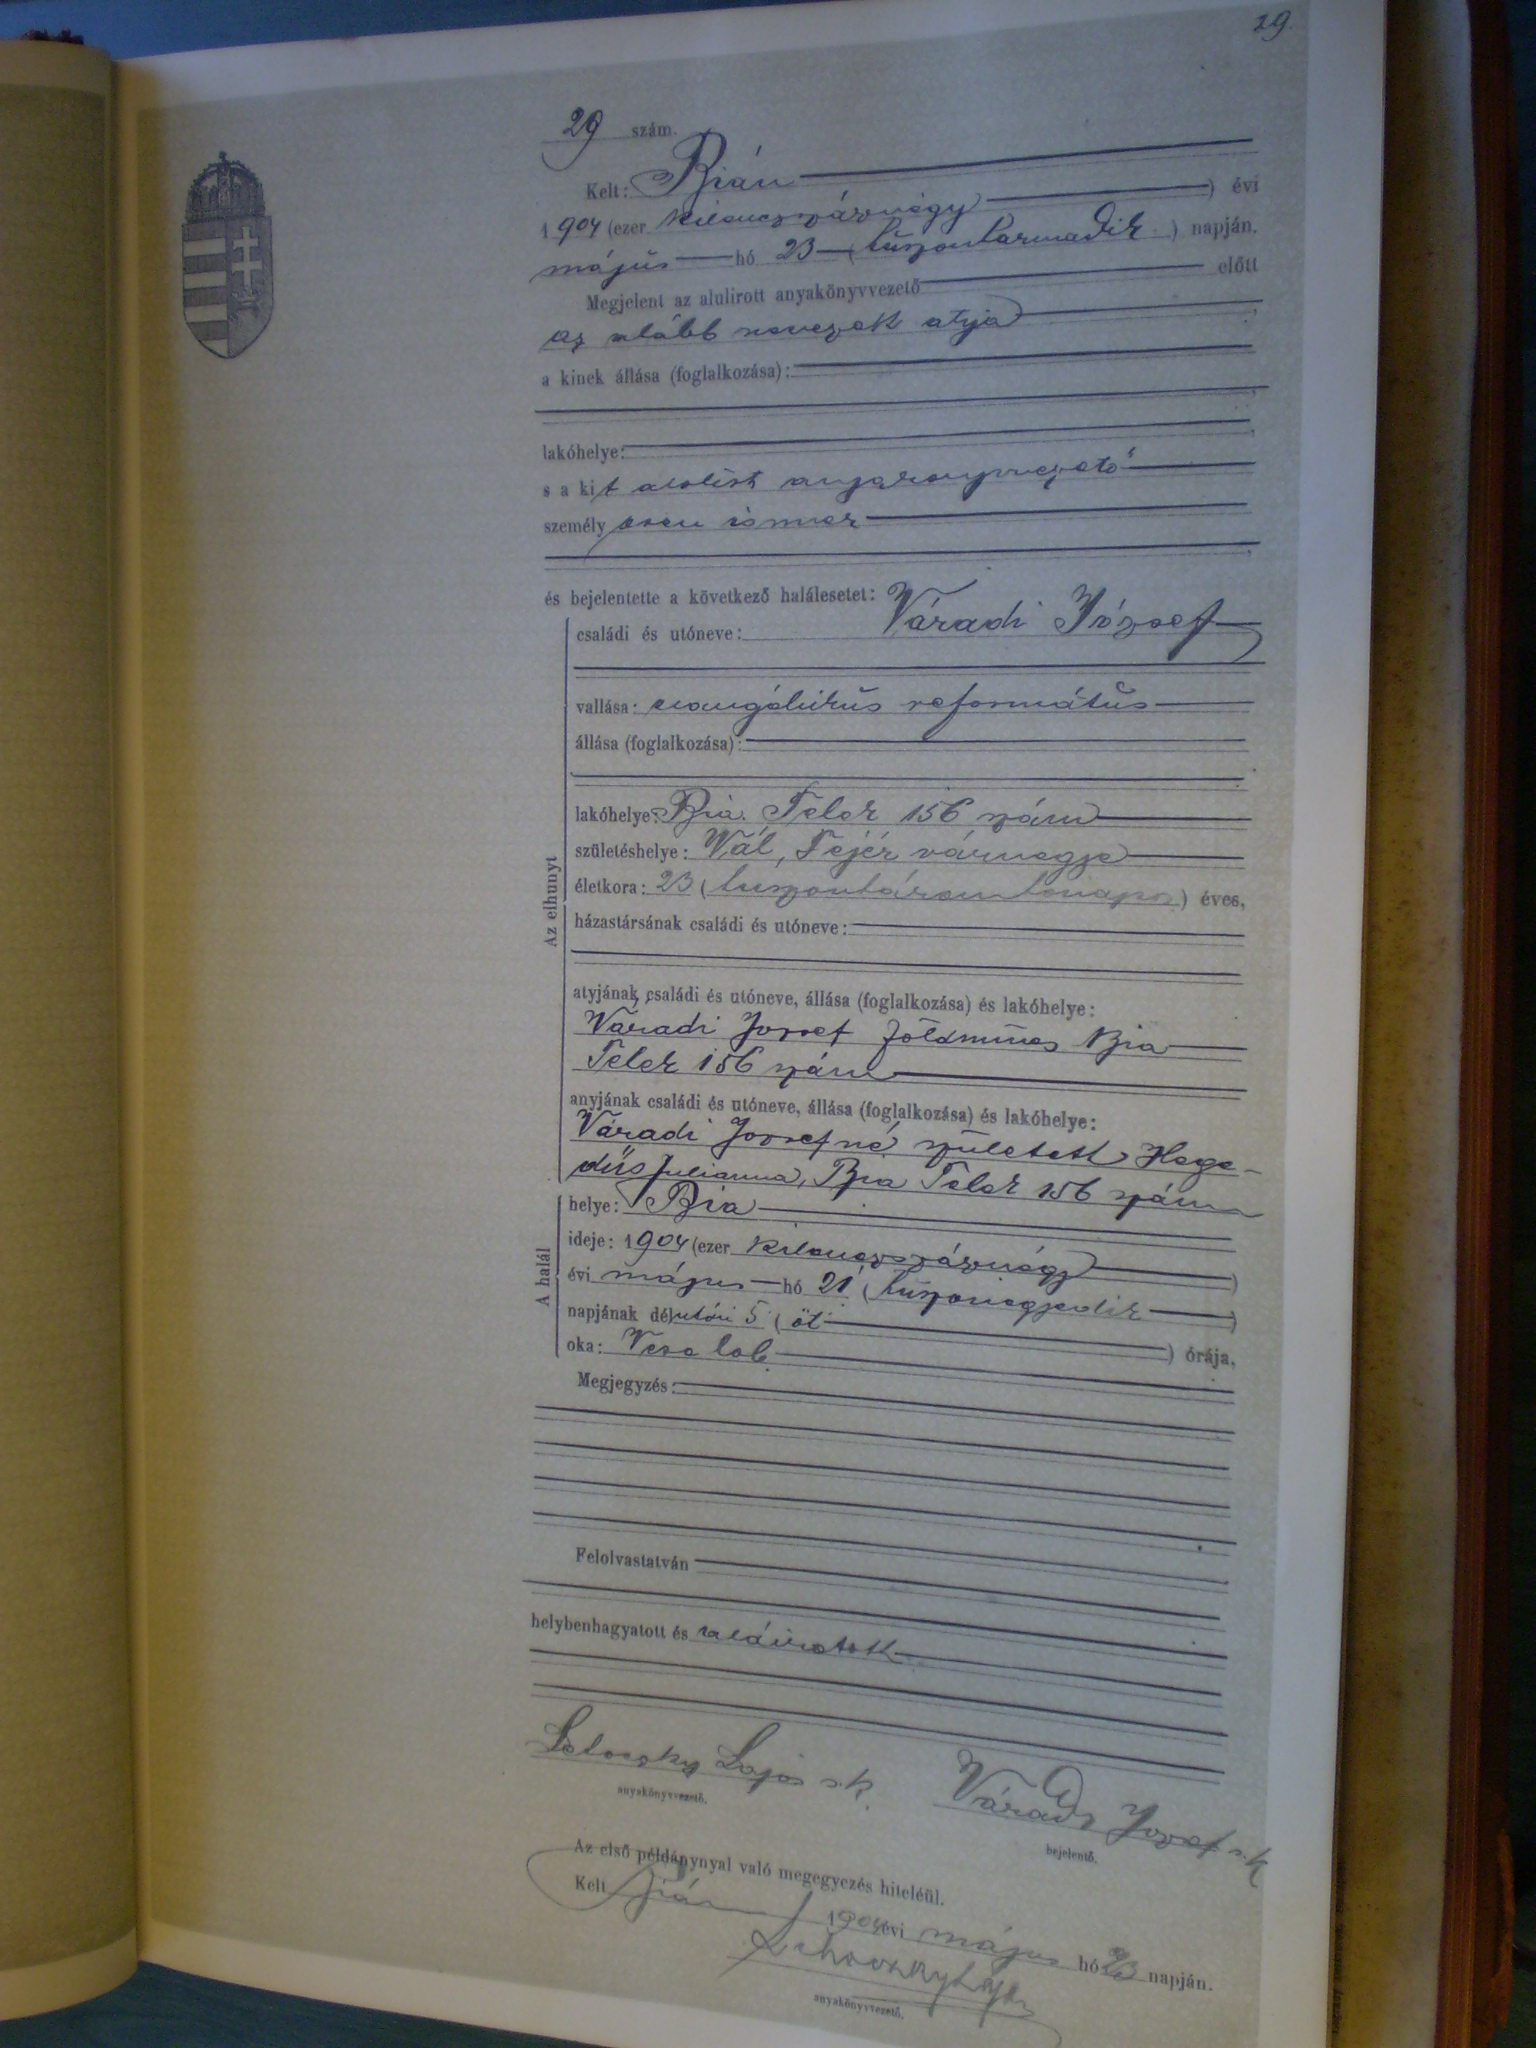 29.
29 szám.
Kelt: Bián
1904 (ezer kilencszáznégy) évi
május hó 23 (huszonharmadik) napján.
Megjelent az alulirott anyakönyvvezető előtt
az alább nevezett atyja
a kinek állása (foglalkozása):
lakóhelye:
s a kit alolirt anyakönyvvezető
személyesen ismer
és bejelentette a következő halálesetet:
családi és utóneve: Váradi József
vallása: evangélikus református
állása (foglalkozása):
lakóhelye: Bia Telek 156 szám
Az elhunyt
születéshelye: Vál, Fejér vármegye
életkora: 23 (huszonhárom hónapos) éves,
házastársának családi és utóneve:
atyjának családi és utóneve, állása (foglalkozása) és lakóhelye:
Váradi József földmíves Bia
Telek 156 szám
anyjának családi és utóneve, állása (foglalkozása) és lakóhelye:
Váradi Józsefné született Hege-
dűs Julianna, Bia Telek 156 szám
A halál
helye: Bia
ideje: 1904 (ezer kilencszáznégy)
évi május hó 21 (huszonegyedik)
napjának délutáni 5 (öt) órája.
oka: Vese lob
Megjegyzés:
Felolvastatván
helybenhagyatott és aláiratott
Lajos s.k. Váradi József s.k.
anyakönyvvezető. bejelentő.
Az első példánynyal való megegyezés hiteléül.
Kelt Bián 1904 évi május hó 23 napján.
anyakönyvvezető.